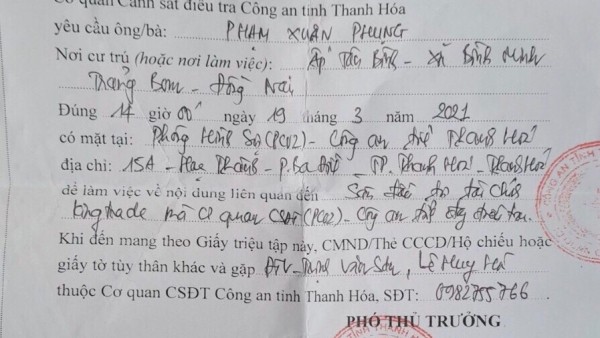 Cơ quan Cảnh sát điều tra Công an tỉnh Thanh Hóa
yêu cầu ông/bà: PHẠM XUÂN PHỤNG
Nơi cư trú (hoặc nơi làm việc): Ấp Tân Bình - xã Bình Minh
Trảng Bom - Đồng Nai
Đúng 14 giờ 00' ngày 19 tháng 3 năm 2021
có mặt tại: Phòng Hình Sự (PC02) - Công an tỉnh Thanh Hoá
địa chỉ: 15A - Hạc Thành - P. Ba Đình - TP. Thanh Hoá - Thanh Hoá
để làm việc về nội dung liên quan đến Sàn đầu tư tài chính
kingtrade mà Cơ quan CSĐT (PC02) - Công an tỉnh đang điều tra.
Khi đến mang theo Giấy triệu tập này, CMND/Thẻ CCCD/Hộ chiếu hoặc
giấy tờ tùy thân khác và gặp ĐTV - Trịnh Văn Sơn, Lê Huy Hà
thuộc Cơ quan CSĐT Công an tỉnh Thanh Hóa, SĐT: 0982755766
PHÓ THỦ TRƯỞNG